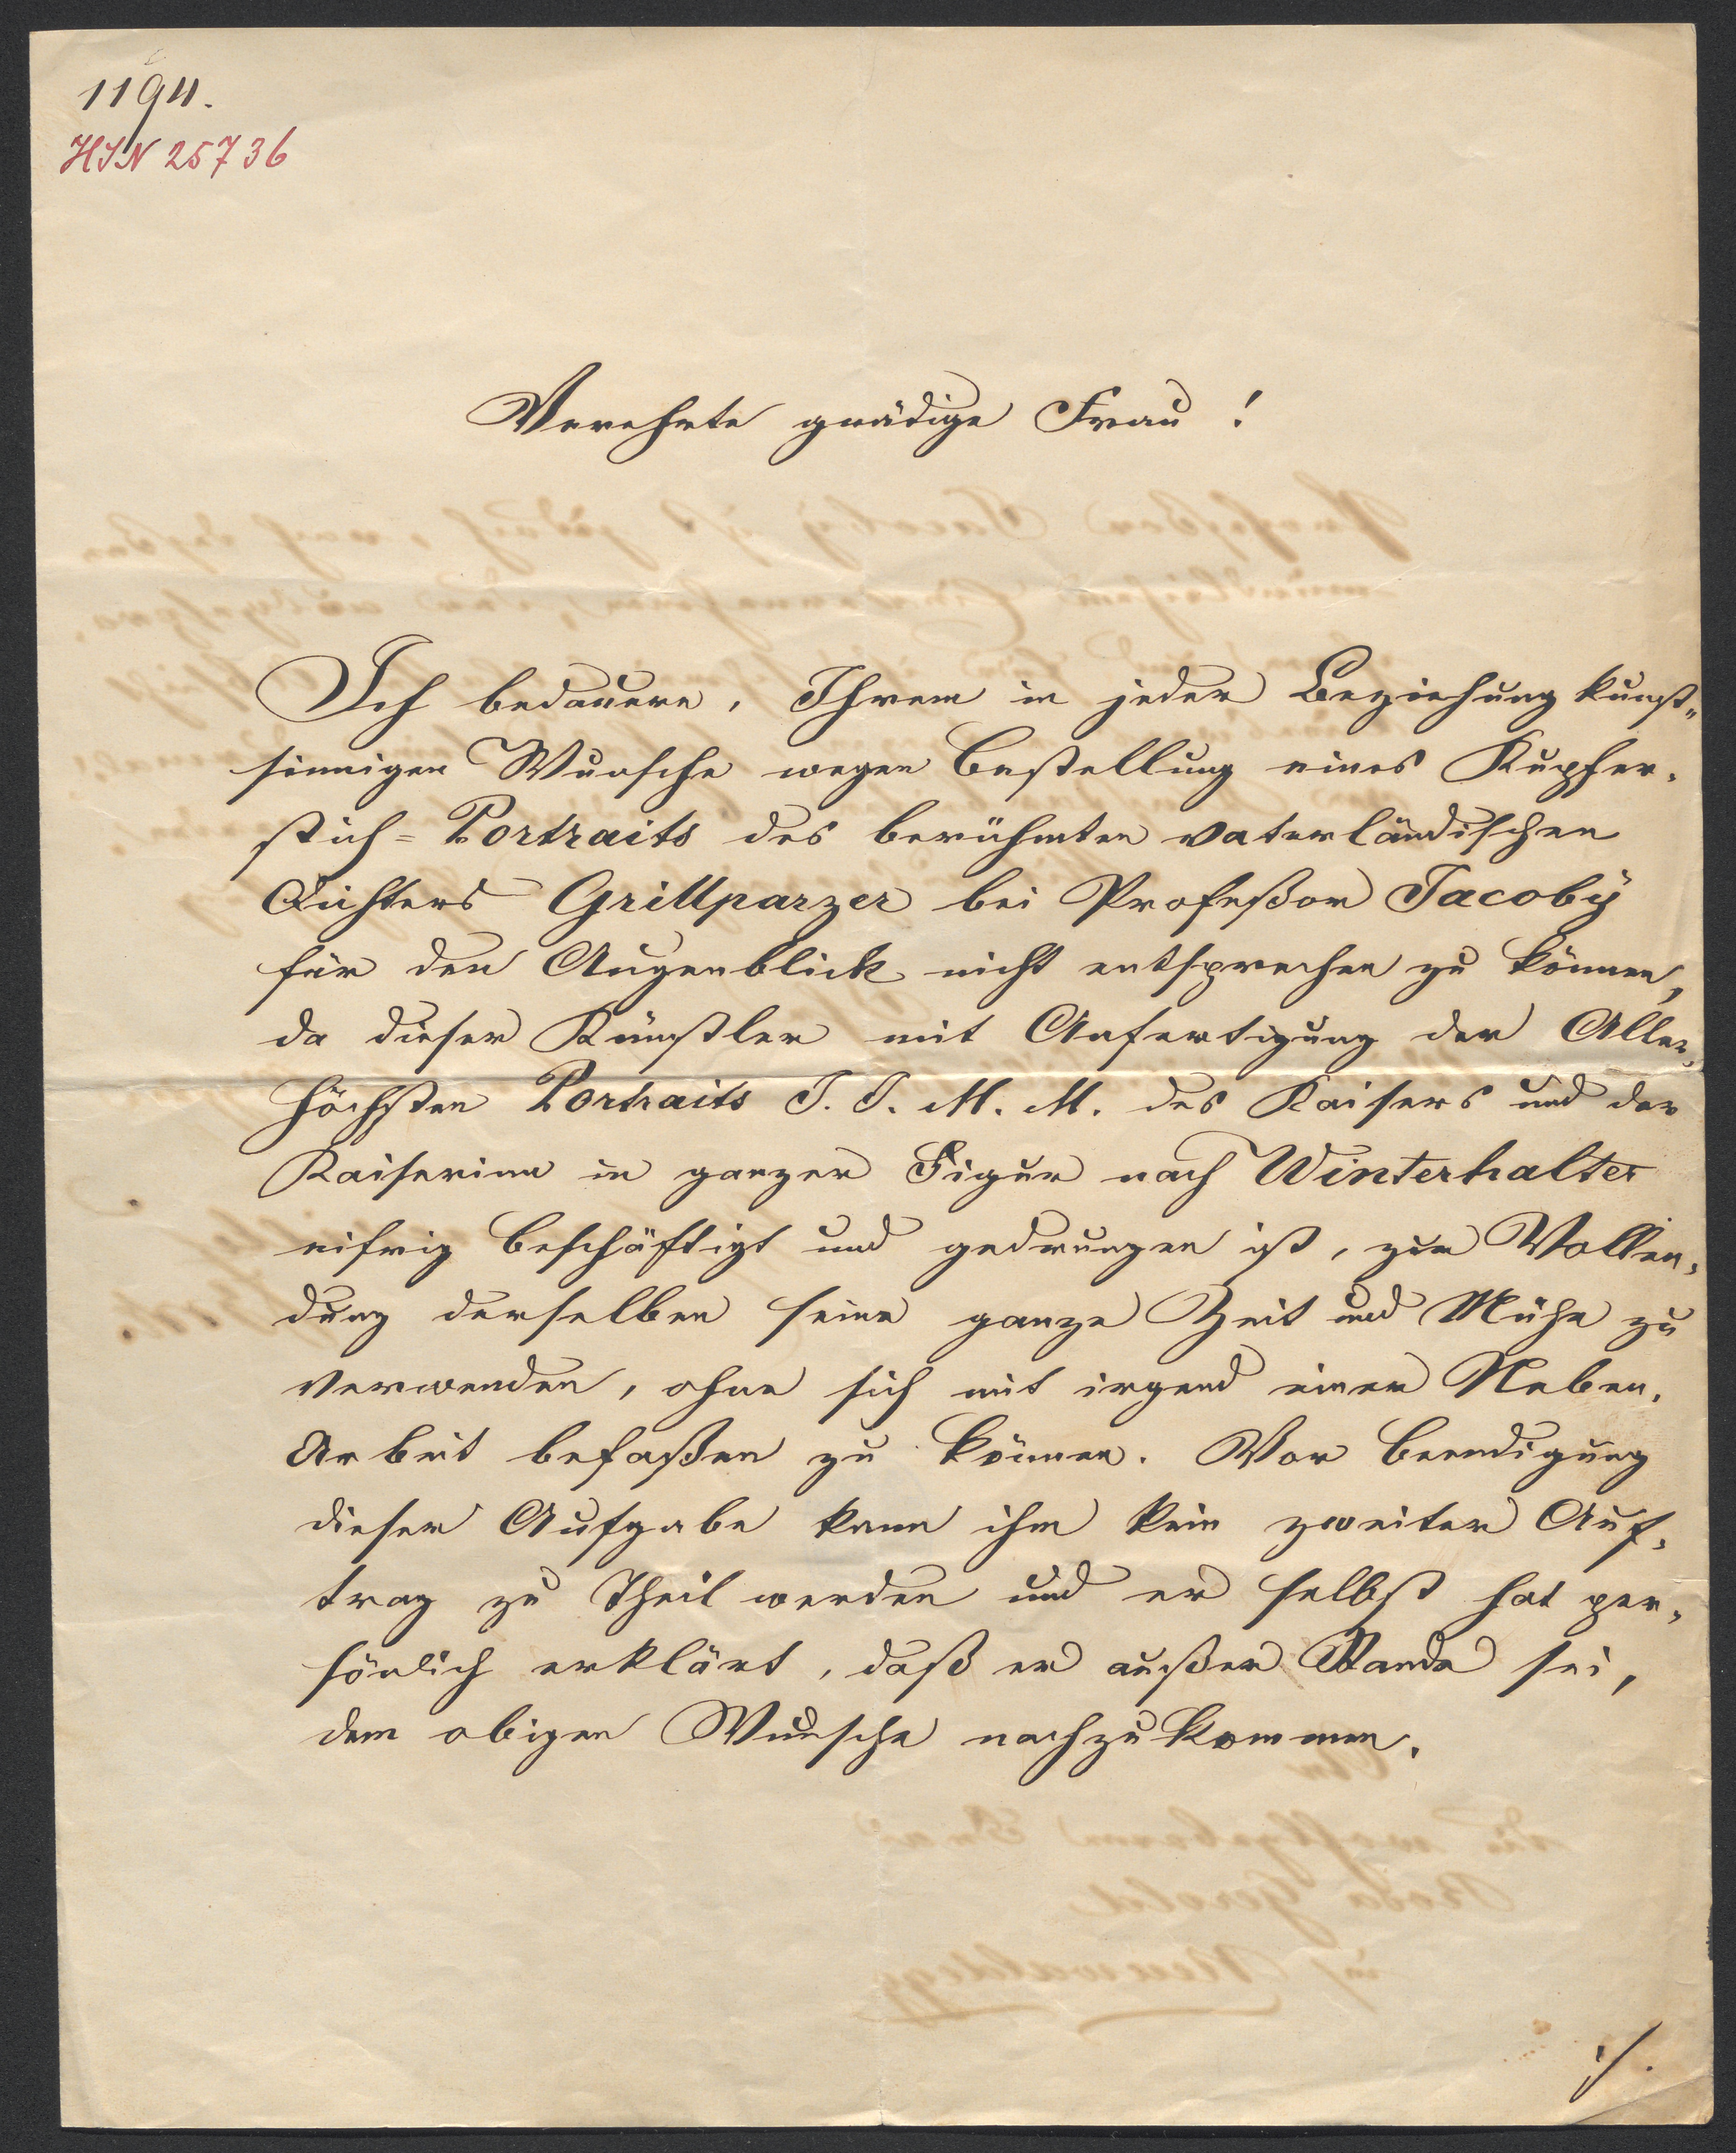 1194.
HIN 25736
Verehrte gnädige Frau!
Ich bedauere, Ihrem in jeder Beziehung kunst„
sinnigen Wunsche wegen Bestellung eines Kupfer„
stich=Portraits des berühmten vaterländischen
Dichters Grillparzer bei Profeßor Jacoby
für den Augenblick nicht entsprechen zu können,
da dieser Künstler mit Anfertigung der Aller„
höchsten Portraits I. I. M. M. des Kaisers und der
Kaiserinn in ganzer Figur nach Winterhalter
eifrig beschäftigt und gedrungen ist, zur Vollen„
dung derselben seine ganze Zeit und Mühe zu
verwenden, ohne sich mit irgend einer Neben„
Arbeit befaßen zu können. Vor Beendigung
dieser Aufgabe kann ihm kein zweiter Auf„
trag zu Theil werden und er selbst hat per„
sönlich erklärt, daß er außer Stande sei,
dem obigen Wunsche nachzukommen.
./.